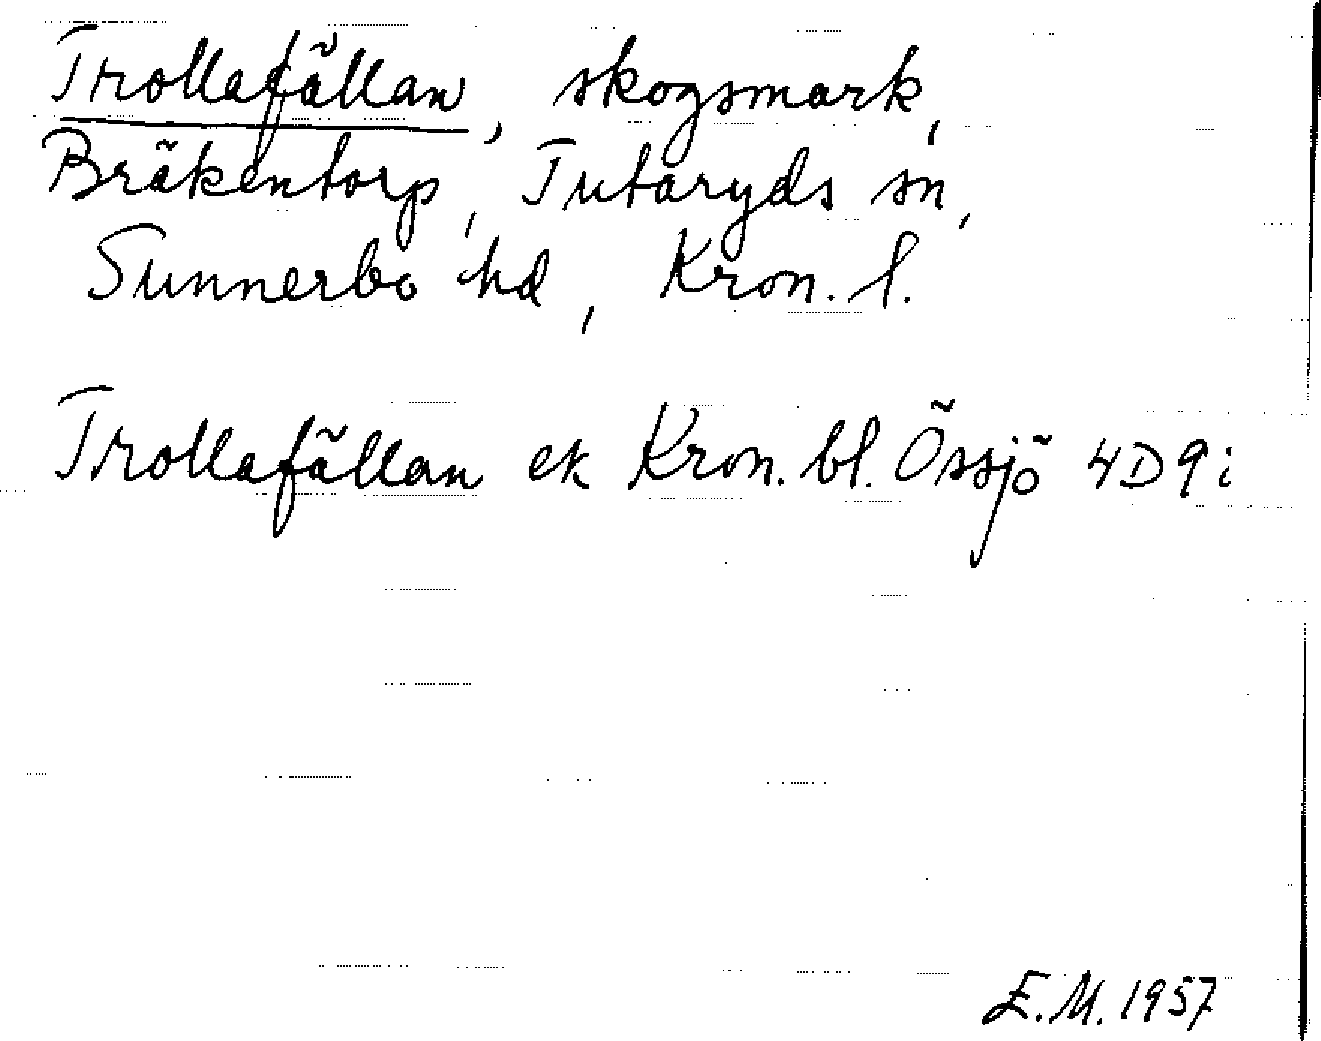 Trollafällan, skogsmark,
Bräkentorp, Tutaryds sn,
Sunnerbo hd, Kron. l.
Trollafällan ek Kron. bl. Össjö 4D9i
E.M. 1957